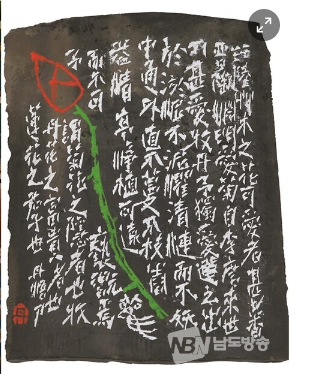 陸艸木之花可愛者甚蕃
淵明獨愛菊自李唐來世
人甚愛牡丹予獨愛蓮之出
於淤泥不染濯清漣而不妖
中通外直不蔓不枝香
益清亭淨植可遠
而不可 褻玩焉
予謂菊花之隱者也牡
丹花之富貴者也
蓮花之君子也
NBN 남도방송